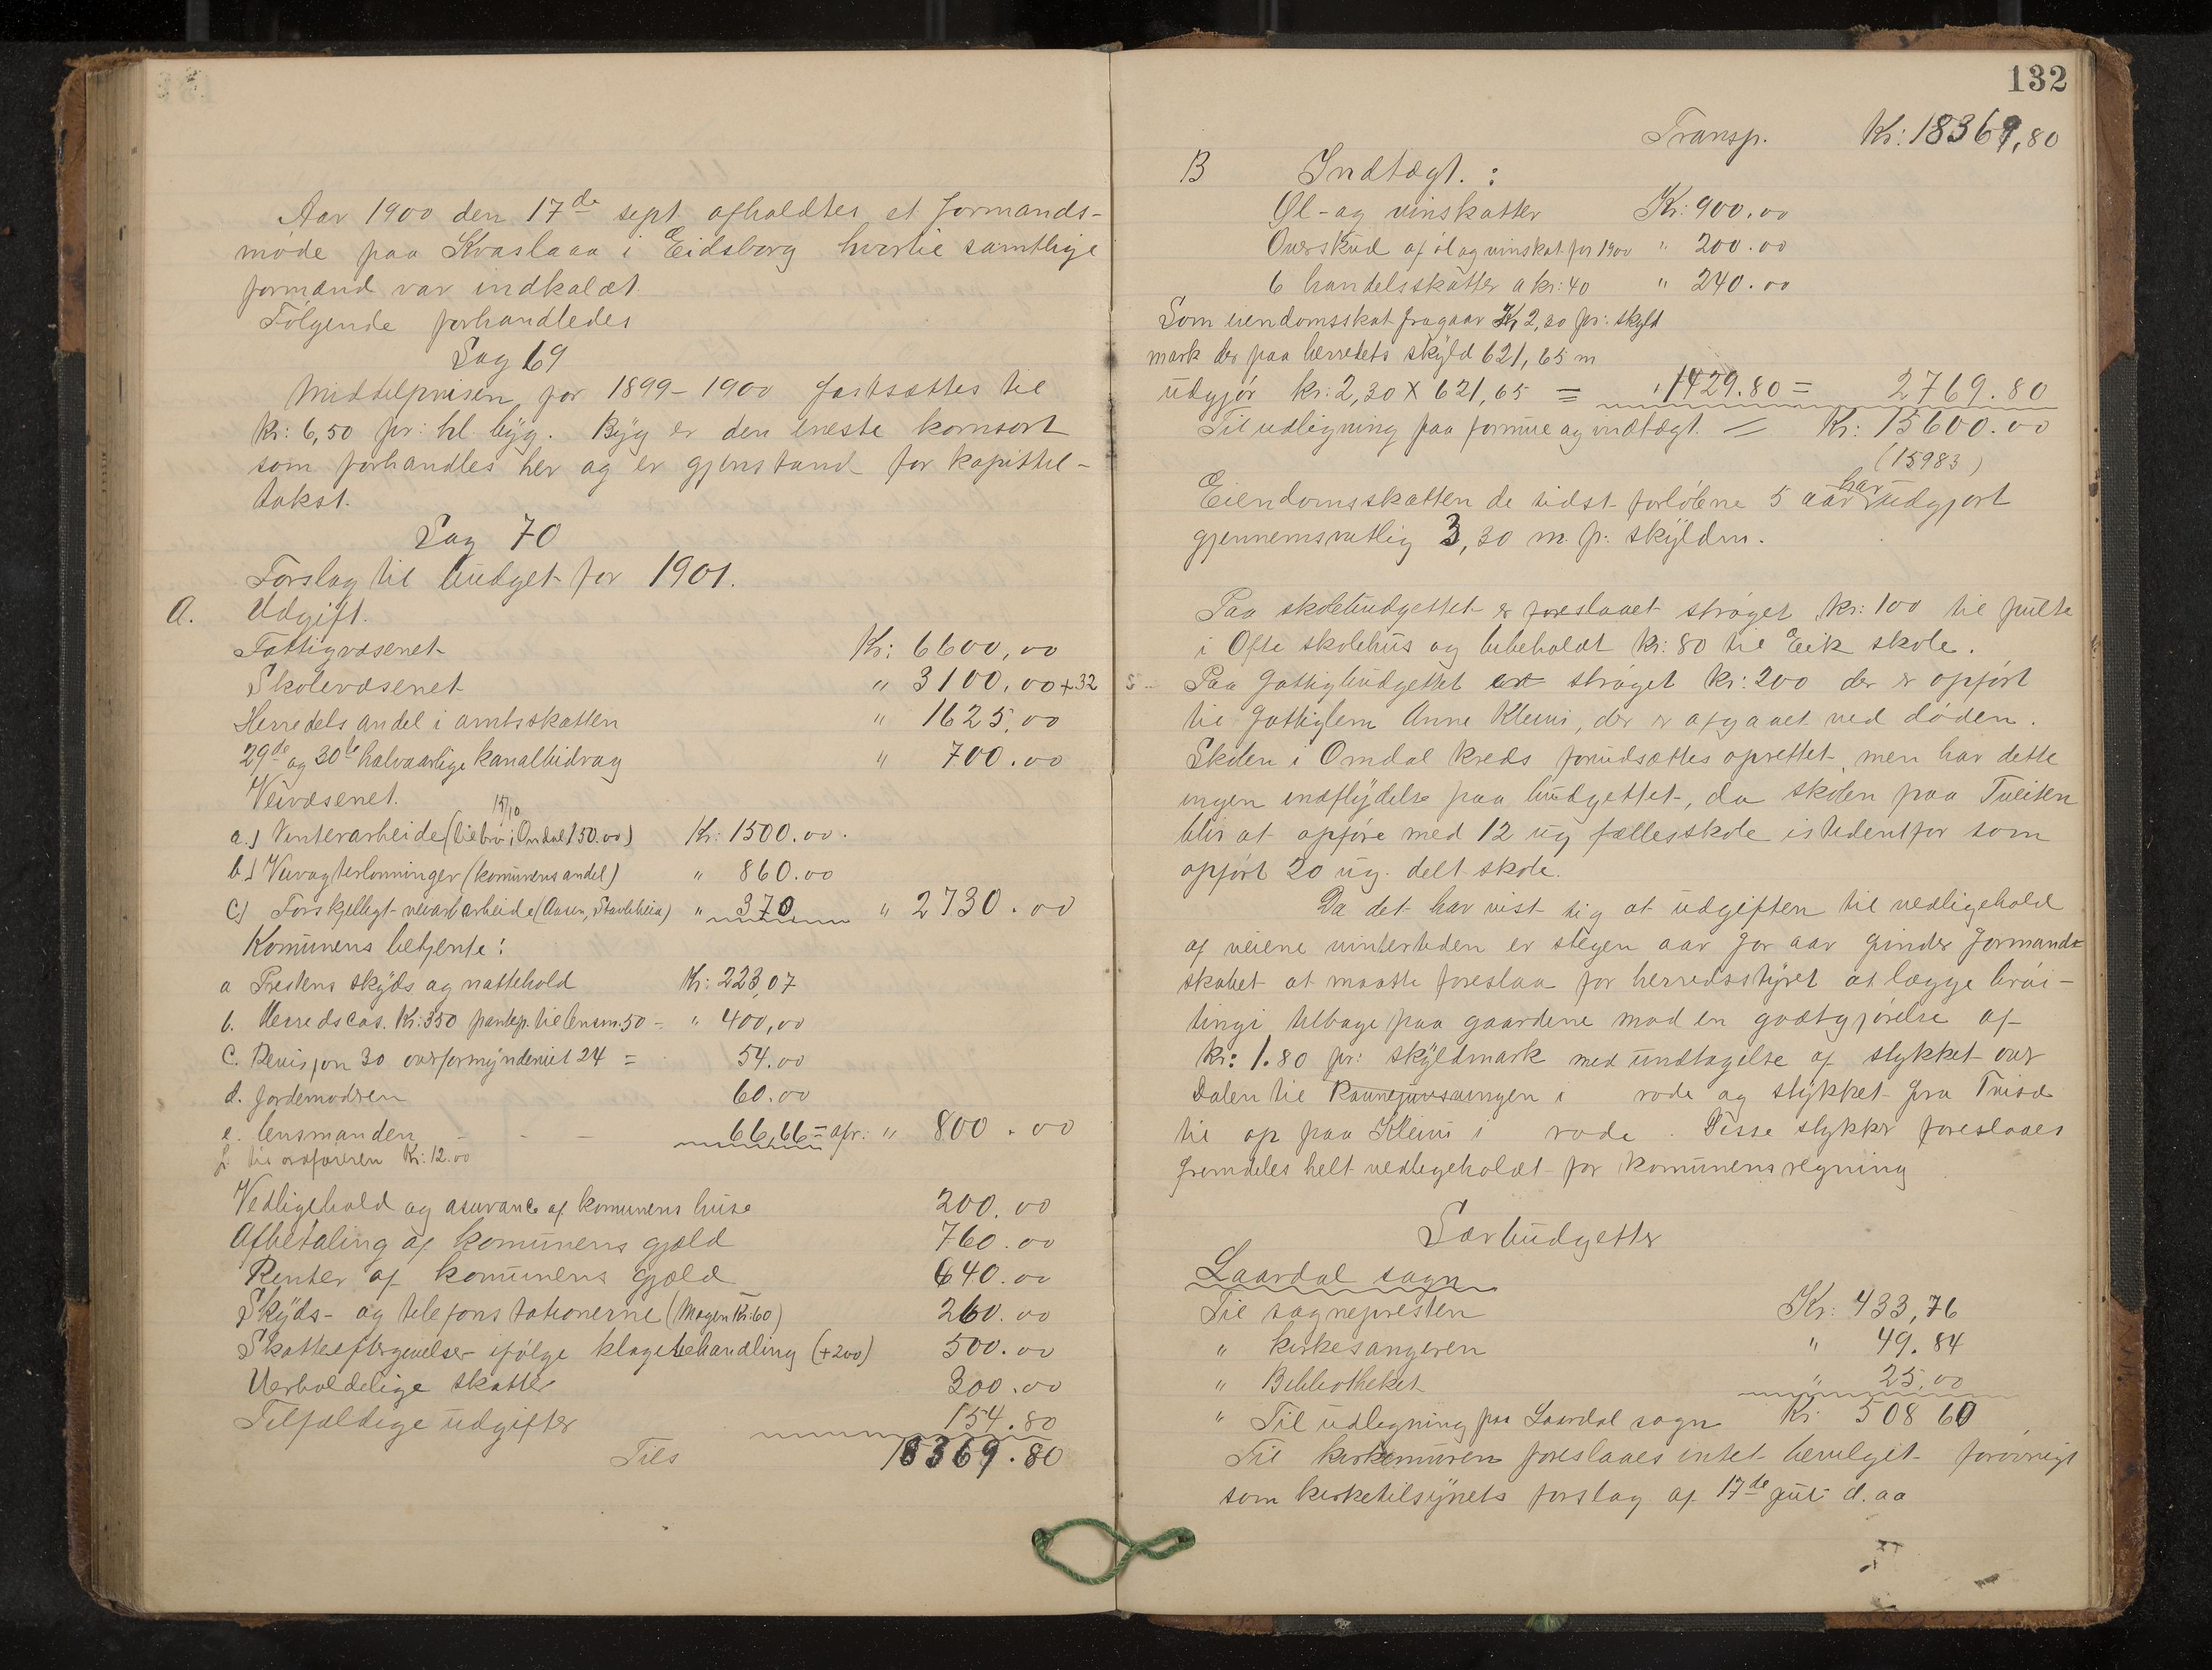 Aar 1900 den 17de sept. afholdtes et formands-
møde paa Kvaslaaa i Eidsborg hvortil samtlige
formænd var indkaldt.
Følgende forhandledes
Sag 69
Middelprisen for 1899-1900 fastsættes til
Kr: 6,50 pr: hl byg. Byg er den eneste kornsort
som forhandles her og er gjenstand for kapittel-
takst.
Sag 70
Forslag til budget for 1901.
A. Udgift.
Fattigvæsenet Kr: 6600,00
Skolevæsenet " 3100,00+32
Herredets andel i amtsskatten " 1625,00
29de og 30te halvaarlige kanalbidrag " 700.00
Veivæsenet. 15/10
a.) Vinterarbeide (til bro i Omdal 150.00) Kr: 1500.00.
b.) Veivogterlønninger (komunens andel) " 860.00
c) Forskjelligt veiarbeide (Aasen, Stavliheia) " 370 " 2730.00
Komunens betjente:
a Prestens skyds og nattehold Kr: 223,07
b. Herredscas. Kr: 350 pantep. til lensm. 50 = " 400,00
c. Revisjon 30 overformynderiet 24 = 54.00
d. Jordemodren 60.00
e. lensmanden - - - 66,66 = afr: " 800.00
f. til ordføreren Kr: 12.00
Vedligehold og asurance af komunens huse 200.00
Afbetaling af komunens gjæld 760.00
Renter af komunens gjæld 640.00
Skyds- og telefonstationerne (Mogen Kr: 60) 260.00
Skatteeftergivelser ifølge klagebehandling (+200) 500.00
Uerholdelige skatter 300.00
Tilfældige udgifter 154.80
Tils 18369.80
132
Transp. Kr: 18369,80
B Indtægt.:
Øl- og vinskatter Kr: 900.00
Overskud af øl og vinskat. for 1900 " 200.00
6 handelsskatter a kr: 40 " 240.00
Som eiendomsskat fragaar Kr 2,30 pr: skyld
mark der paa herredets skyld 621,65 m
udgjør kr: 2,30 X 621,65 = " 1429.80 = 2769.80
Til udligning paa formue og indtægt. = Kr: 15600.00
(15983)
Eiendomsskatten de sidst forløbne 5 aar har udgjort
gjennemsnitlig 3,30 m. pr. skylden.
Paa skolebudgettet er foreslaaet strøget kr: 100 til pulte
i Ofte skolehus og bibeholdt kr: 80 til Eik skole.
Paa fattigbudgettet er strøget kr: 200 der er opført
til fattiglem Anne Kleivi, der er afgaaet ved døden.
Skolen i Omdal kreds forudsættes oprettet, men har dette
ingen indflydelse paa budgettet, da skolen paa Tveiten
blir at opføre med 12 ug fællesskole istedentfor som
opført 20 ug. delt skole.
Da det har vist sig at udgiften til vedligehold
af veiene vintertiden er stegen aar for aar finder formand-
skabet at maatte foreslaa for herredsstyret at lægge brøi-
tingi tilbage paa gaardene mod en godtgjørelse af
kr: 1.80 pr: skyldmark med undtagelse af stykket over
Dalen til i rode og stykket fra Trisæ
til op paa Kleivi i rode. Disse stykker foreslaaes
fremdeles helt vedligeholdt for komunens regning
Særbudgetter
Laardal sogn
Til sognepresten Kr: 433,76
" kirkesangeren " 49.84
" Bibliotheket " 25.00
" Til udligning paa Laardal sogn Kr: 508 60
Til kirkemuren foreslaaes intet bevilget forøvrigt
som kirketilsynets forslag af 17de juli d. aa